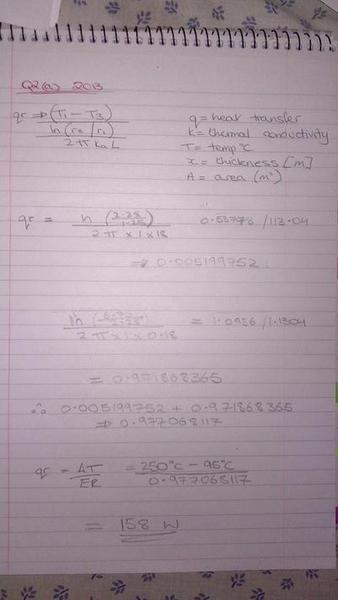 Q2(a) 2013
qr ⇒ (T1 - T3)
ln (r2/r1)
2π ka L
q = heat transfer
k = thermal conductivity
T = temp °C
x = thickness [m]
A = area (m²)
qr = ln
2π x 1 x 18
113.04
⇒ 0.005199752
ln
2π x 1 x 0.18
= 1.0986 / 1.1304
= 0.971868365
∴ 0.005199752 + 0.971868365
⇒ 0.977068117
qr = ΔT = 250°C - 95°C
ER 0.977068117
= 158 W